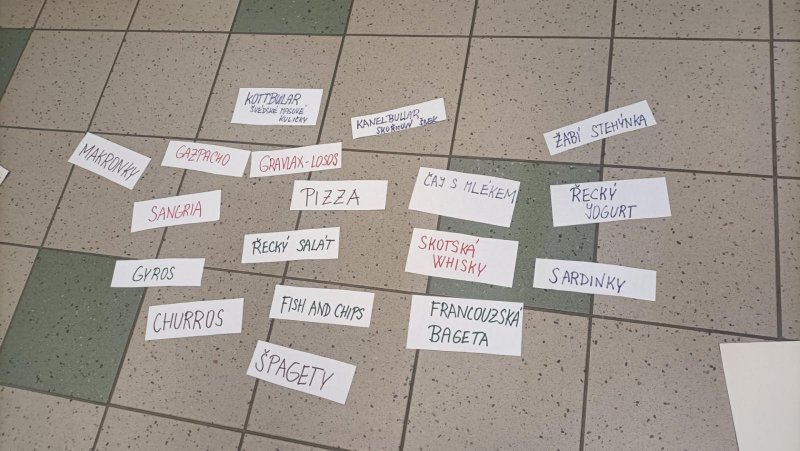 KÖTTBULAR
ŠVÉDSKÉ MASOVÉ
KULIČKY
KANELBULLAR
SKOŘICOVÝ ŠNEK
ŽABÍ STEHÝNKA
MAKRONKY
GAZPACHO
GRAVLAX-LOSOS
SANGRIA
PIZZA
ČAJ S MLÉKEM
ŘECKÝ
YOGURT
ŘECKÝ SALÁT
SKOTSKÁ
WHISKY
GYROS
SARDINKY
CHURROS
FISH AND CHIPS
FRANCOUZSKÁ
BAGETA
ŠPAGETY